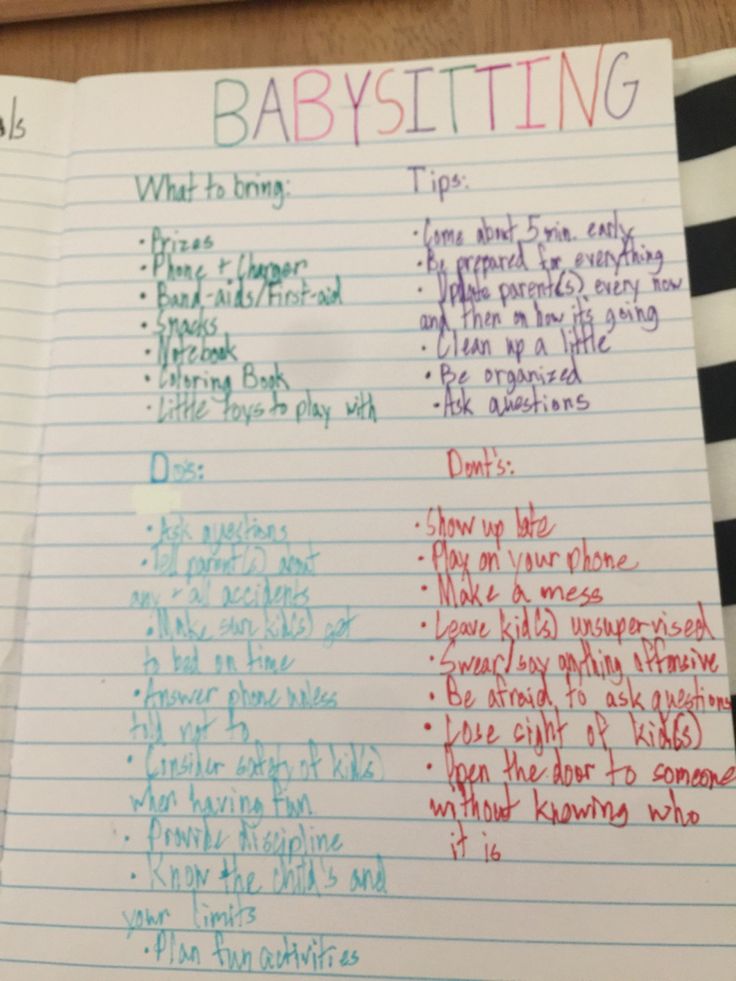 BABYSITTING
What to bring:
• Prizes
• Phone + Charger
• Band-aids/First-aid
• Snacks
• Notebook
• Coloring Book
• Little toys to play with
Tips:
• Come about 5 min. early
• Be prepared for everything
• Update parent(s) every now
and then on how it's going
• Clean up a little
• Be organized
• Ask questions
Do's:
• Ask questions
• Tell parent(s) about
any + all accidents
• Make sure kid(s) get
to bed on time
• Answer phone unless
told not to
• Consider safety of kid(s)
when having fun
• Provide discipline
• Know the child's and
your limits
• Plan fun activities
Dont's:
• Show up late
• Play on your phone
• Make a mess
• Leave kid(s) unsupervised
• Swear/say anything offensive
• Be afraid to ask questions
• Lose sight of kid(s)
• Open the door to someone
without knowing who
it is